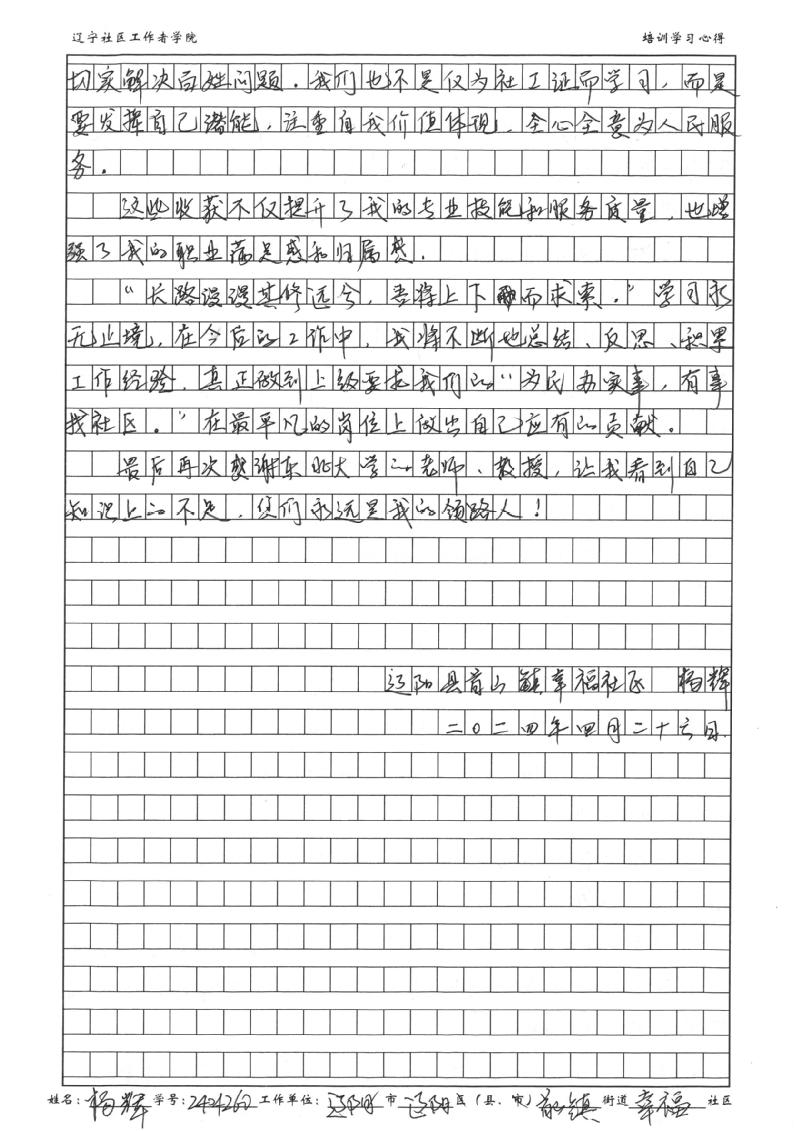 辽宁社区工作者学院 培训学习心得
切实解决百姓问题。我们也不是仅为社工证而学习，而是
要发挥自己潜能，注重自我价值体现，全心全意为人民服
务。
这些收获不仅提升了我的专业技能和服务质量，也增
强了我的职业满足感和归属感。
“长路漫漫其修远兮，吾将上下而求索。”学习永
无止境，在今后的工作中，我将不断地总结、反思、积累
工作经验，真正做到上级要求我们的“为民办实事，有事
找社区。”在最平凡的岗位上做出自己应有的贡献。
最后再次感谢东北大学的老师、教授，让我看到自己
知识上的不足，您们永远是我的领路人！
辽阳县首山镇幸福社区 杨辉
二〇二四年四月二十六日
姓名：杨辉 学号：2404260 工作单位：辽阳 市 辽阳 区（县、市） 首山镇 街道 幸福 社区